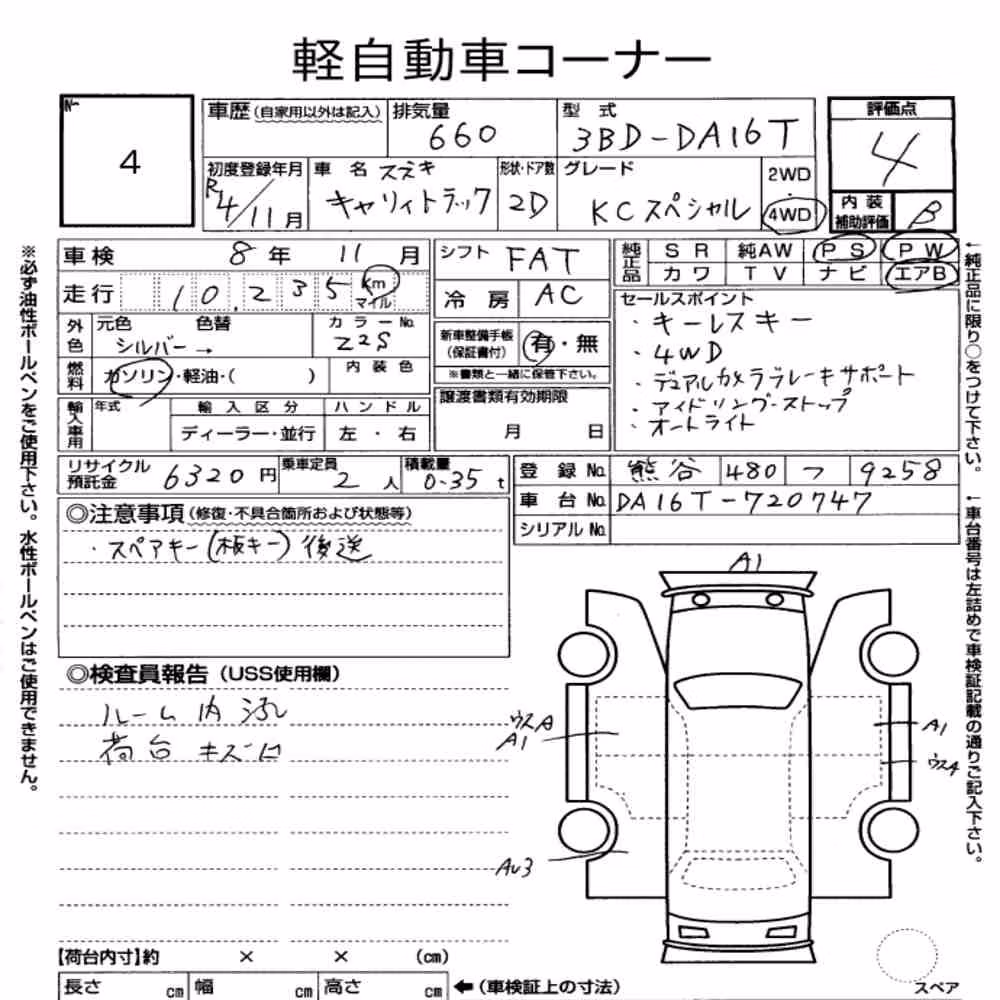 軽自動車コーナー
№
4
車歴 (自家用以外は記入)
排気量
660
型 式
3BD-DA16T
評価点
4
初度登録年月
R4/11月
車 名 スズキ
キャリイトラック
形状・ドア数
2D
グレード
KCスペシャル
2WD
・
4WD
内 装
補助評価
B
車検 8年 11月
シフト FAT
純正品
SR 純AW PS PW
カワ TV ナビ エアB
走行 10,235 km
マイル
冷 房 AC
セールスポイント
・キーレスキー
・4WD
・デュアルカメラブレーキサポート
・アイドリングーストップ
・オートライト
外色
元色 色替
シルバー→
カラーNo.
Z2S
新車整備手帳
(保証書付)
有・無
※書類と一緒に保管下さい。
燃料
ガソリン・軽油・( )
内 装 色
輸入車用
年式
輸 入 区 分
ディーラー・並行
ハ ン ド ル
左 ・ 右
譲渡書類有効期限
月 日
リサイクル
預託金
6320円
乗車定員
2人
積載量
0.35t
登 録 No. 熊谷 480 つ 9258
車 台 No. DA16T-720747
シリアル No.
◎注意事項(修復・不具合箇所および状態等)
・スペアキー(板キー)後送
◎検査員報告(USS使用欄)
ルーム内汚レ
荷台 キズ凹
A1
ウスA
A1
A1
ウスA
AU3
【荷台内寸】約 × × (cm)
長さ cm 幅 cm 高さ cm
←(車検証上の寸法)
スペア
※必ず油性ボールペンをご使用下さい。水性ボールペンはご使用できません。
←純正品に限り○をつけて下さい。
←車台番号は左詰めで車検証記載の通りご記入下さい。